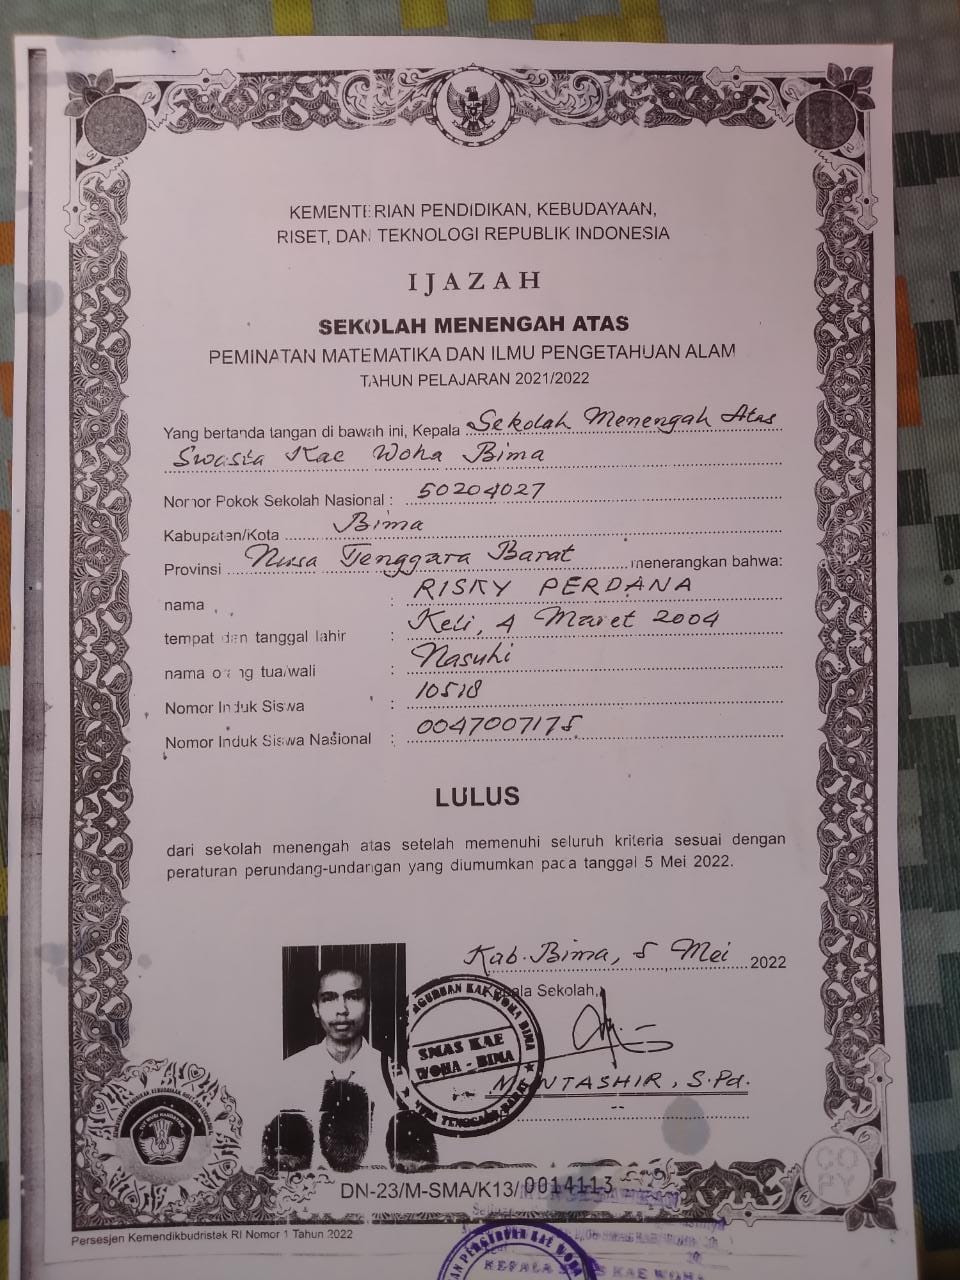 KEMENTERIAN PENDIDIKAN, KEBUDAYAAN,
RISET, DAN TEKNOLOGI REPUBLIK INDONESIA
IJAZAH
SEKOLAH MENENGAH ATAS
PEMINATAN MATEMATIKA DAN ILMU PENGETAHUAN ALAM
TAHUN PELAJARAN 2021/2022
Yang bertanda tangan di bawah ini, Kepala Sekolah Menengah Atas
Swasta Kae Woha Bima
Nomor Pokok Sekolah Nasional : 50204027
Kabupaten/Kota Bima
Provinsi Nusa Tenggara Barat menerangkan bahwa:
nama : RISKY PERDANA
tempat dan tanggal lahir : Keli, 4 Maret 2004
nama orang tua/wali : Nasuhi
Nomor Induk Siswa : 10518
Nomor Induk Siswa Nasional : 0047007175
LULUS
dari sekolah menengah atas setelah memenuhi seluruh kriteria sesuai dengan
peraturan perundang-undangan yang diumumkan pada tanggal 5 Mei 2022.
Kab. Bima, 5 Mei 2022
Kepala Sekolah,
SMAS KAE
WOHA - BIMA
MUNTASHIR, S.Pd.
--
COPY
DN-23/M-SMA/K13/0014113
Persesjen Kemendikbudristek RI Nomor 1 Tahun 2022
KEPALA SMAS KAE WOHA